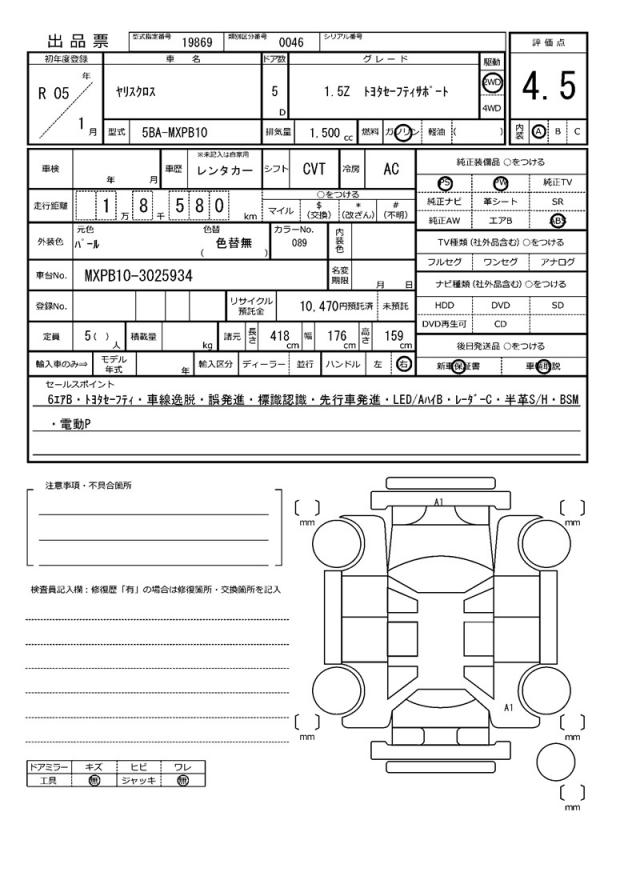 出品票 型式指定番号 19869 類別区分番号 0046 シリアル番号
初年度登録 車名 ドア数 グレード 駆動 評価点
R 05 年 1 月 ヤリスクロス 5 D 1.5Z トヨタセーフティサポート 2WD 4WD 4.5
型式 5BA-MXPB10 排気量 1.500 cc 燃料 ガソリン 軽油 ( ) 内装 A B C
車検 年 月 車歴 ※未記入は自家用 レンタカー シフト CVT 冷房 AC 純正装備品 ○をつける
PS PW 純正TV
走行距離 1 万 8 千 5 8 0 km ○をつける 純正ナビ 革シート SR
マイル $ (交換) * (改ざん) # (不明) 純正AW エアB ABS
外装色 元色 パール 色替 色替無 ( ) カラーNo. 089 内装色 TV種類 (社外品含む) ○をつける
フルセグ ワンセグ アナログ
車台No. MXPB10-3025934 名変期限 月 日 ナビ種類 (社外品含む) ○をつける
登録No. リサイクル預託金 10,470円預託済 未預託 HDD DVD SD
DVD再生可 CD
定員 5( ) 人 積載量 kg 諸元 長さ 418 cm 幅 176 cm 高さ 159 cm 後日発送品 ○をつける
輸入車のみ⇒ モデル年式 年 輸入区分 ディーラー 並行 ハンドル 左 右 新車保証書 車輌取説
セールスポイント
6エアB・トヨタセーフティ・車線逸脱・誤発進・標識認識・先行車発進・LED/AハイB・レーダーC・半革S/H・BSM
・電動P
注意事項・不具合箇所
A1
mm mm
検査員記入欄：修復歴「有」の場合は修復箇所・交換箇所を記入
A1
mm mm
ドアミラー キズ ヒビ ワレ
工具 無 ジャッキ 無
mm